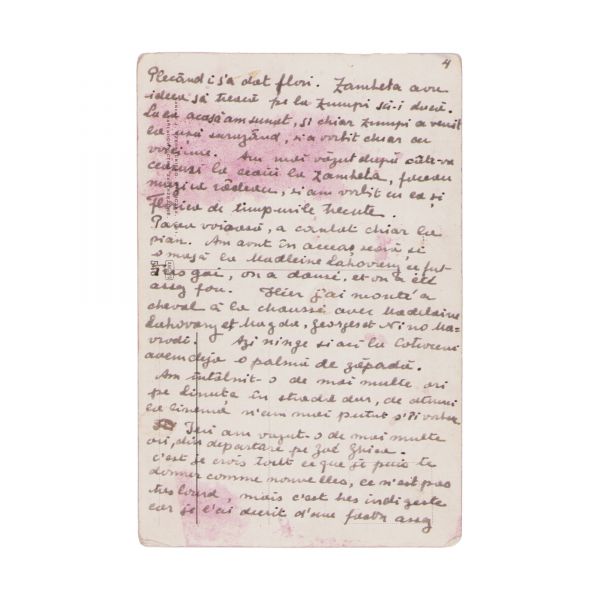 4
Plecând i s'a dat flori. Zambela avu
ideea să trecă pe la Zumpi să-i ducă.
La ea acasă am sunat, și chiar Zumpi a venit
la ușă surâzând, și a vorbit chiar cu
voiciune. Am mai văzut după câte-va
ceaiuri la Zambela, făceau
muzică râdeau, și am vorbit cu ea și
Florica de timpurile trecute.
Părea voioasă, a cântat chiar la
pian. Am avut în aceeaș seară și
o masă la Madeleine Lahovary, ce fut
très gai, on a dansé, et on a été
assez fou. Hier j'ai monté a
cheval à la chaussée avec Madelaine
Lahovary et Magda, Georges et Nino Ma-
vrodi. Azi ninge si aci la Cotroceni
avem deja o palmă de zăpadă.
Am întâlnit-o de mai multe ori
pe Linuța în stradă dar, de atunci
la cinema n'am mai putut s'i vorbesc
Ieri am vazut-o de mai multe
ori, din departare pe Zoé Ghica.
c'est je crois tout ce que je puis te
donner comme nouvelles, ce n'est pas
tres lourd, mais c'est tres indigeste
car je l'ai décrit d'une façon assez